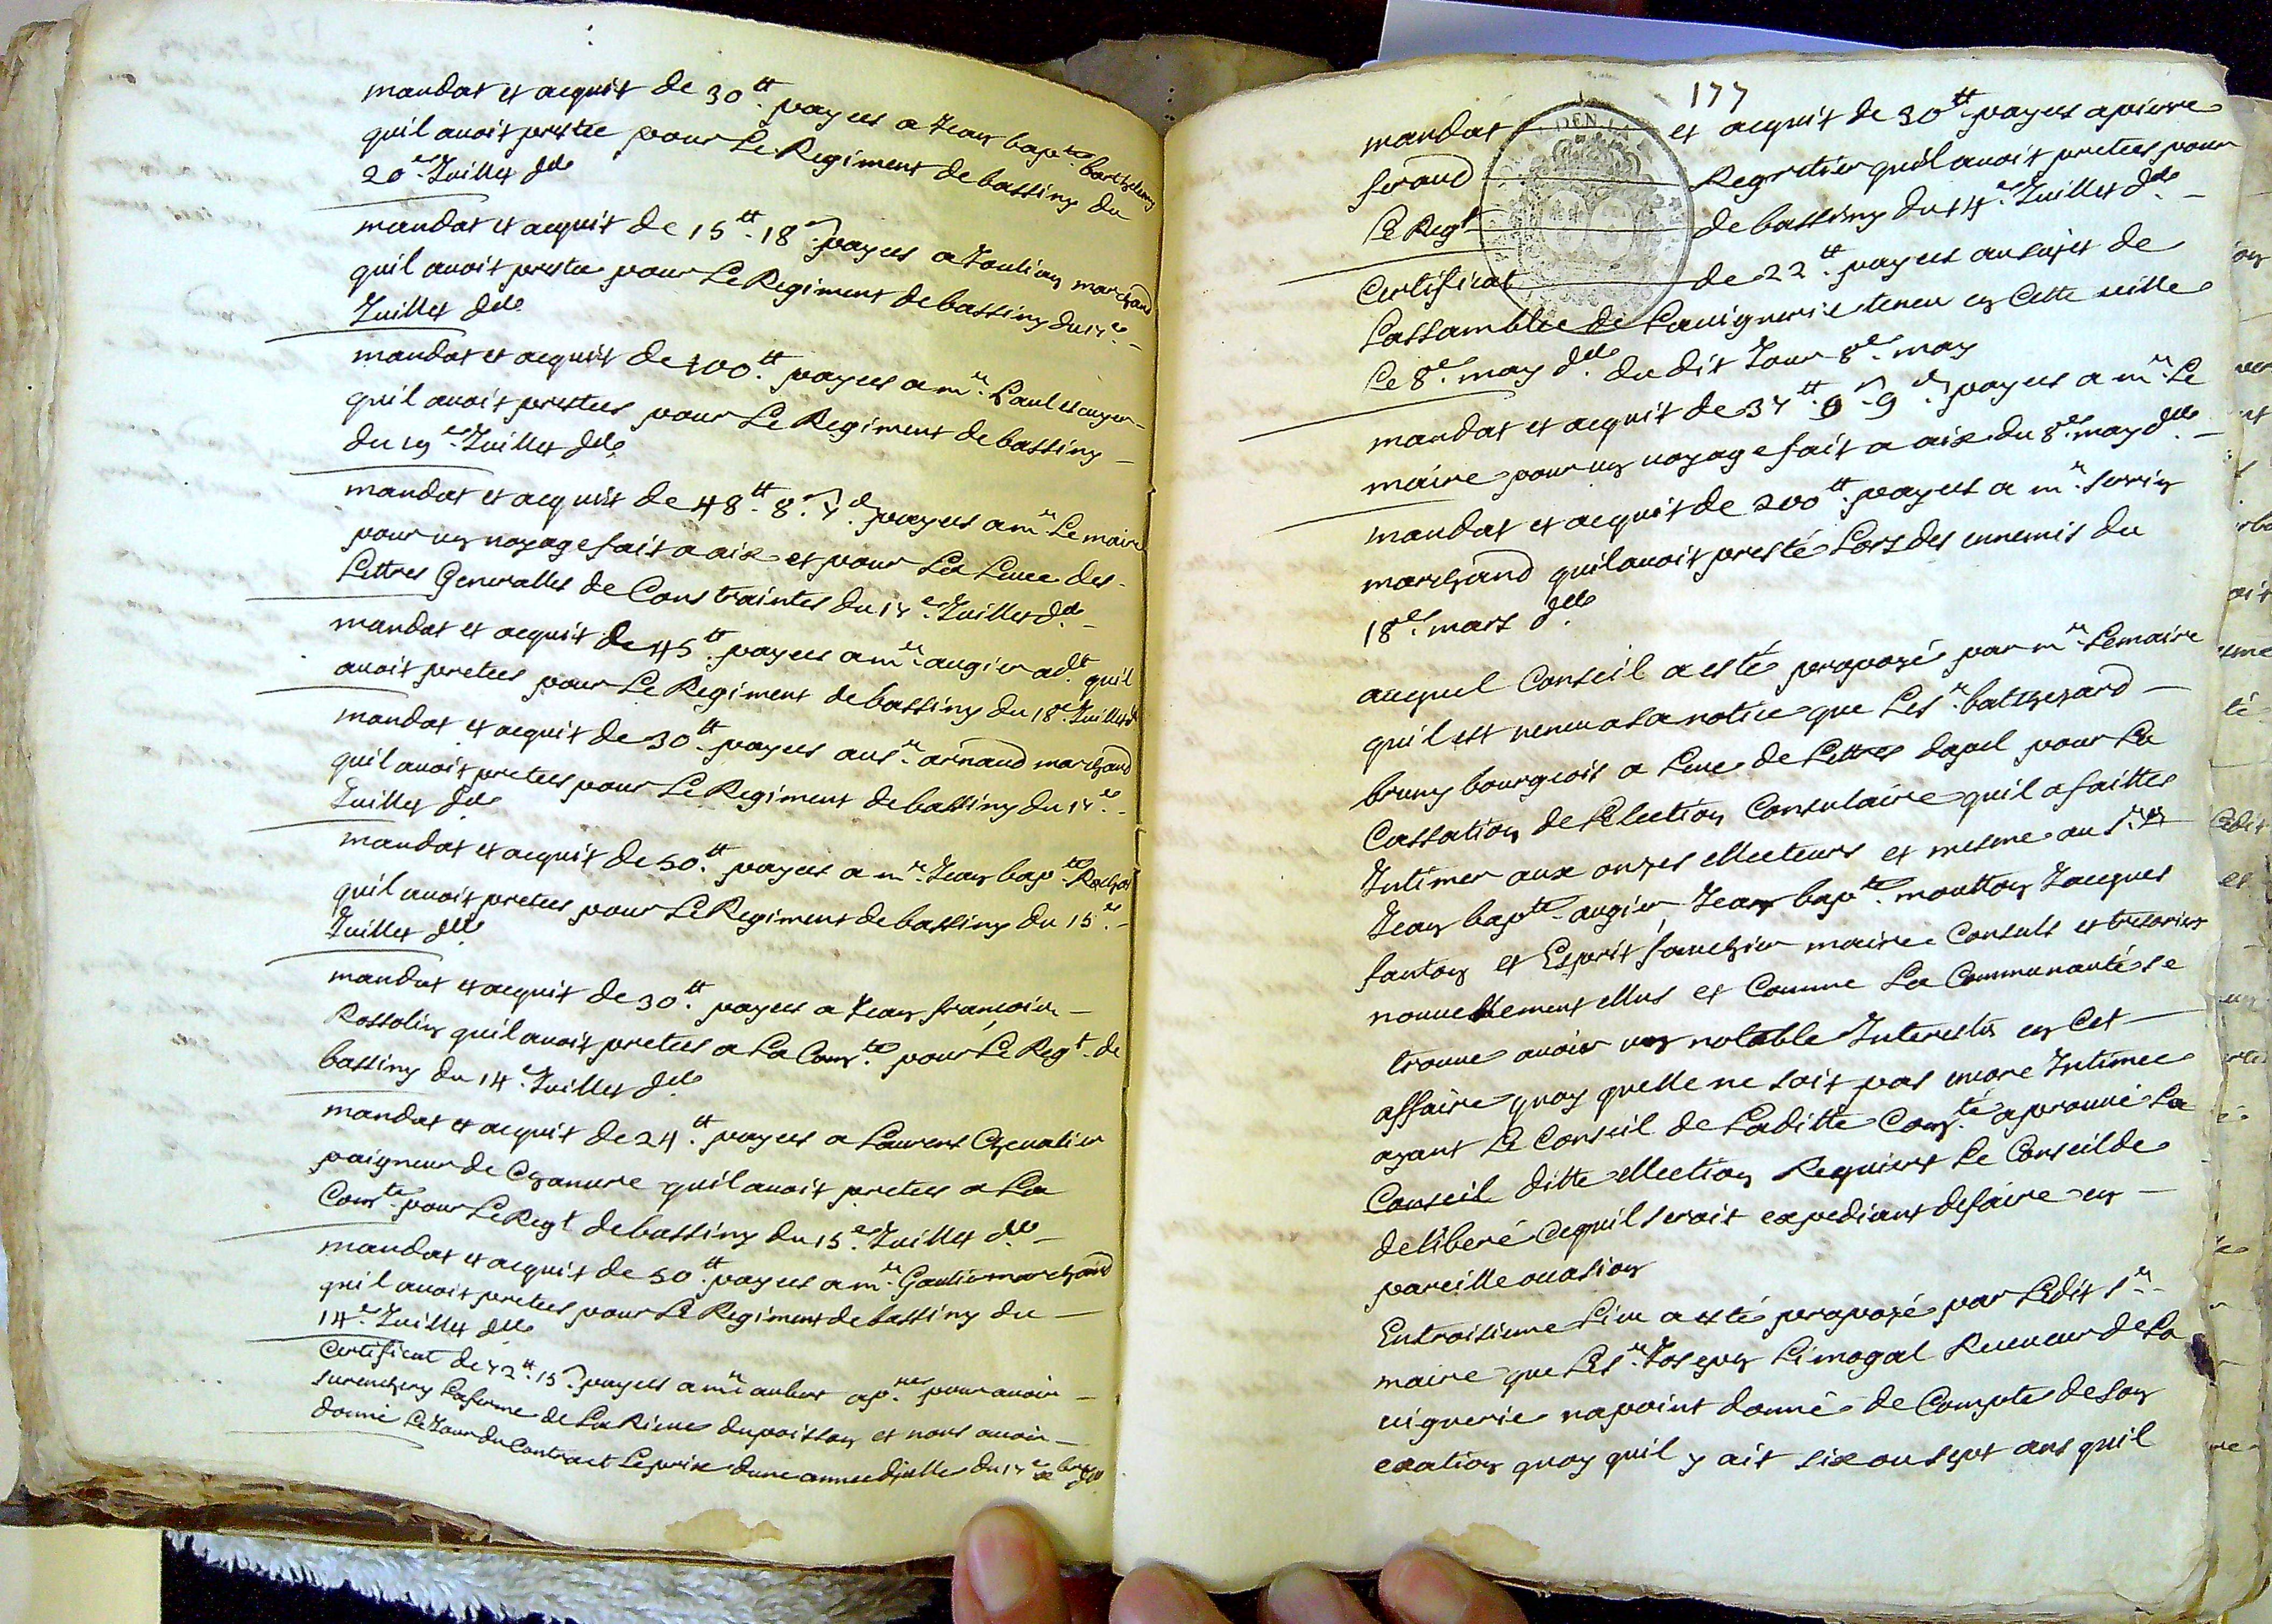 mandat et acquit de 30tt. payees a Jean bapte barthelemy
quil auoit prestee pour Le Regiment de bassiny du
20e Juillet dle
mandat et acquit de 15tt. 18s payees a marchand
quil auoit prestee pour Le Regiment de bassiny du 17e
Juillet dle
mandat et acquit de 100tt. payees a mr. Paul
quil auoit prestees pour Le Regiment de bassiny
du 19e Juillet dle
mandat et acquit de 48tt. 8s. 7d payees a mr Le maire
pour un uoyage fait a aix et pour La Leuee des
Lettres Generalles de Constraintes du 17e Juillet dle
mandat et acquit de 45tt. payees a mr augier adt. quil
auoit pretees pour Le Regiment de bassiny du 18e Juillet dle
mandat et acquit de 30tt. payees au sr. arnaud marchand
quil auoit pretees pour Le Regiment de bassiny du 17e
Juillet dle
mandat et acquit de 50tt. payees a mr. Jean bapte
quil auoit pretees pour Le Regiment de bassiny du 15e
Juillet dle
mandat et acquit de 30tt. payees a Jean francois
Rossolin quil auoit pretees a La Comte. pour Le Regt. de
bassiny du 14e Juillet dle
mandat et acquit de 24tt. payees a Laurens Cheualier
paigneur de Chanure quil auoit pretees a La
Comte. pour Le Regt de bassiny du 15e Juillet dle
mandat et acquit de 50tt. payees a mr. Gautier marchand
quil auoit pretees pour Le Regiment de bassiny du
14e Juillet dle
Certificat de 72tt. 15s. payees a mr aubert apre pour auoir
surenchery La ferme de La Rieue du poisson et nous auoir
donné Le Jour du Contract Le prix dune annee dicelle du 17e xbre dle
177
mandat et acquit de 30tt payees a pierre
feraud Regretier quil auoit pretees pour
Le Regt de bassiny du 14e Juillet dle
Certificat de 22tt. payees au sujet de
Lassamblee de Lauiguerie teneu en Cette uille
Le 8e. may dle. du dit Jour 8e. may
mandat et acquit de 37tt. 6s. 9d. payees a mr. Le
maire pour un uoyage fait a aix du 8e. may dle
mandat et acquit de 200tt. payees a mr. serrin
marchand quil auoit presté Lors des ennemis du
18e. mars dle
auquel Conseil a esté proposé par mr Lemaire
quil est uenu a sa notice que Le sr. balthezard
bruny bourgeois a Leué de Lettres dapel pour La
Cassation de Lelection Consulaire quil a faittes
Intimer aux onzes ellecteurs et mesme au srs
Jean bapte augier, Jean bapte. moutton Jacques
fanton et Esprit fauchier maire Consuls et tresorier
nouuellement ellus et Comme La Communauté se
trouue auoir un notable Interestz en Cet
affaire quoy quelle ne soit pas encore Intimee
ayant Le Conseil de Laditte Comté. aprouué La
Conseil ditte ellection Requiert Le Conseil de
deliberé Cequil seroit expediant de faire en
pareille ouasion
Entroisieme Lieu a esté proposé par Ledit sr.
maire que Le sr. Joseph Limogal Receueur de La
uiguerie na point donné de Compte de son
exation quoy quil y ait six ou sept ans quil